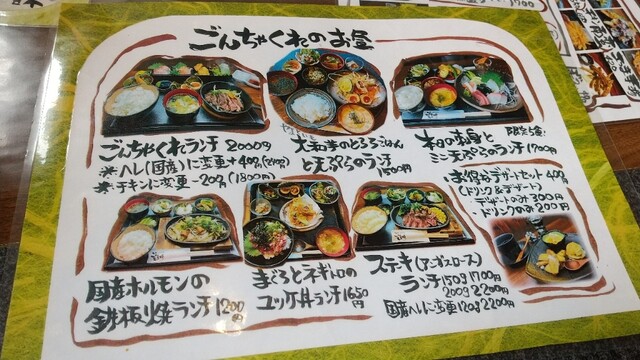 ごんちゃくれのお昼
ごんちゃくれランチ 2000円
※ヘレ(国産)に変更+400円(2400円)
※チキンに変更-200円(1800円)
大和芋のとろろごはん
と天ぷらのランチ
1500円
本日のお造りと 限定5食!
ミニ天ぷらのランチ 1700円
お得なデザートセット 400円
(ドリンク&デザート)
デザートのみ 300円
・ドリンクのみ 200円
国産ホルモンの
鉄板焼ランチ 1200円
まぐろとネギトロの
ユッケ丼ランチ 1650円
ステキ(アンガスロース)
ランチ 150g 1700円
200g 2200円
国産ヘレに変更 120g 2200円